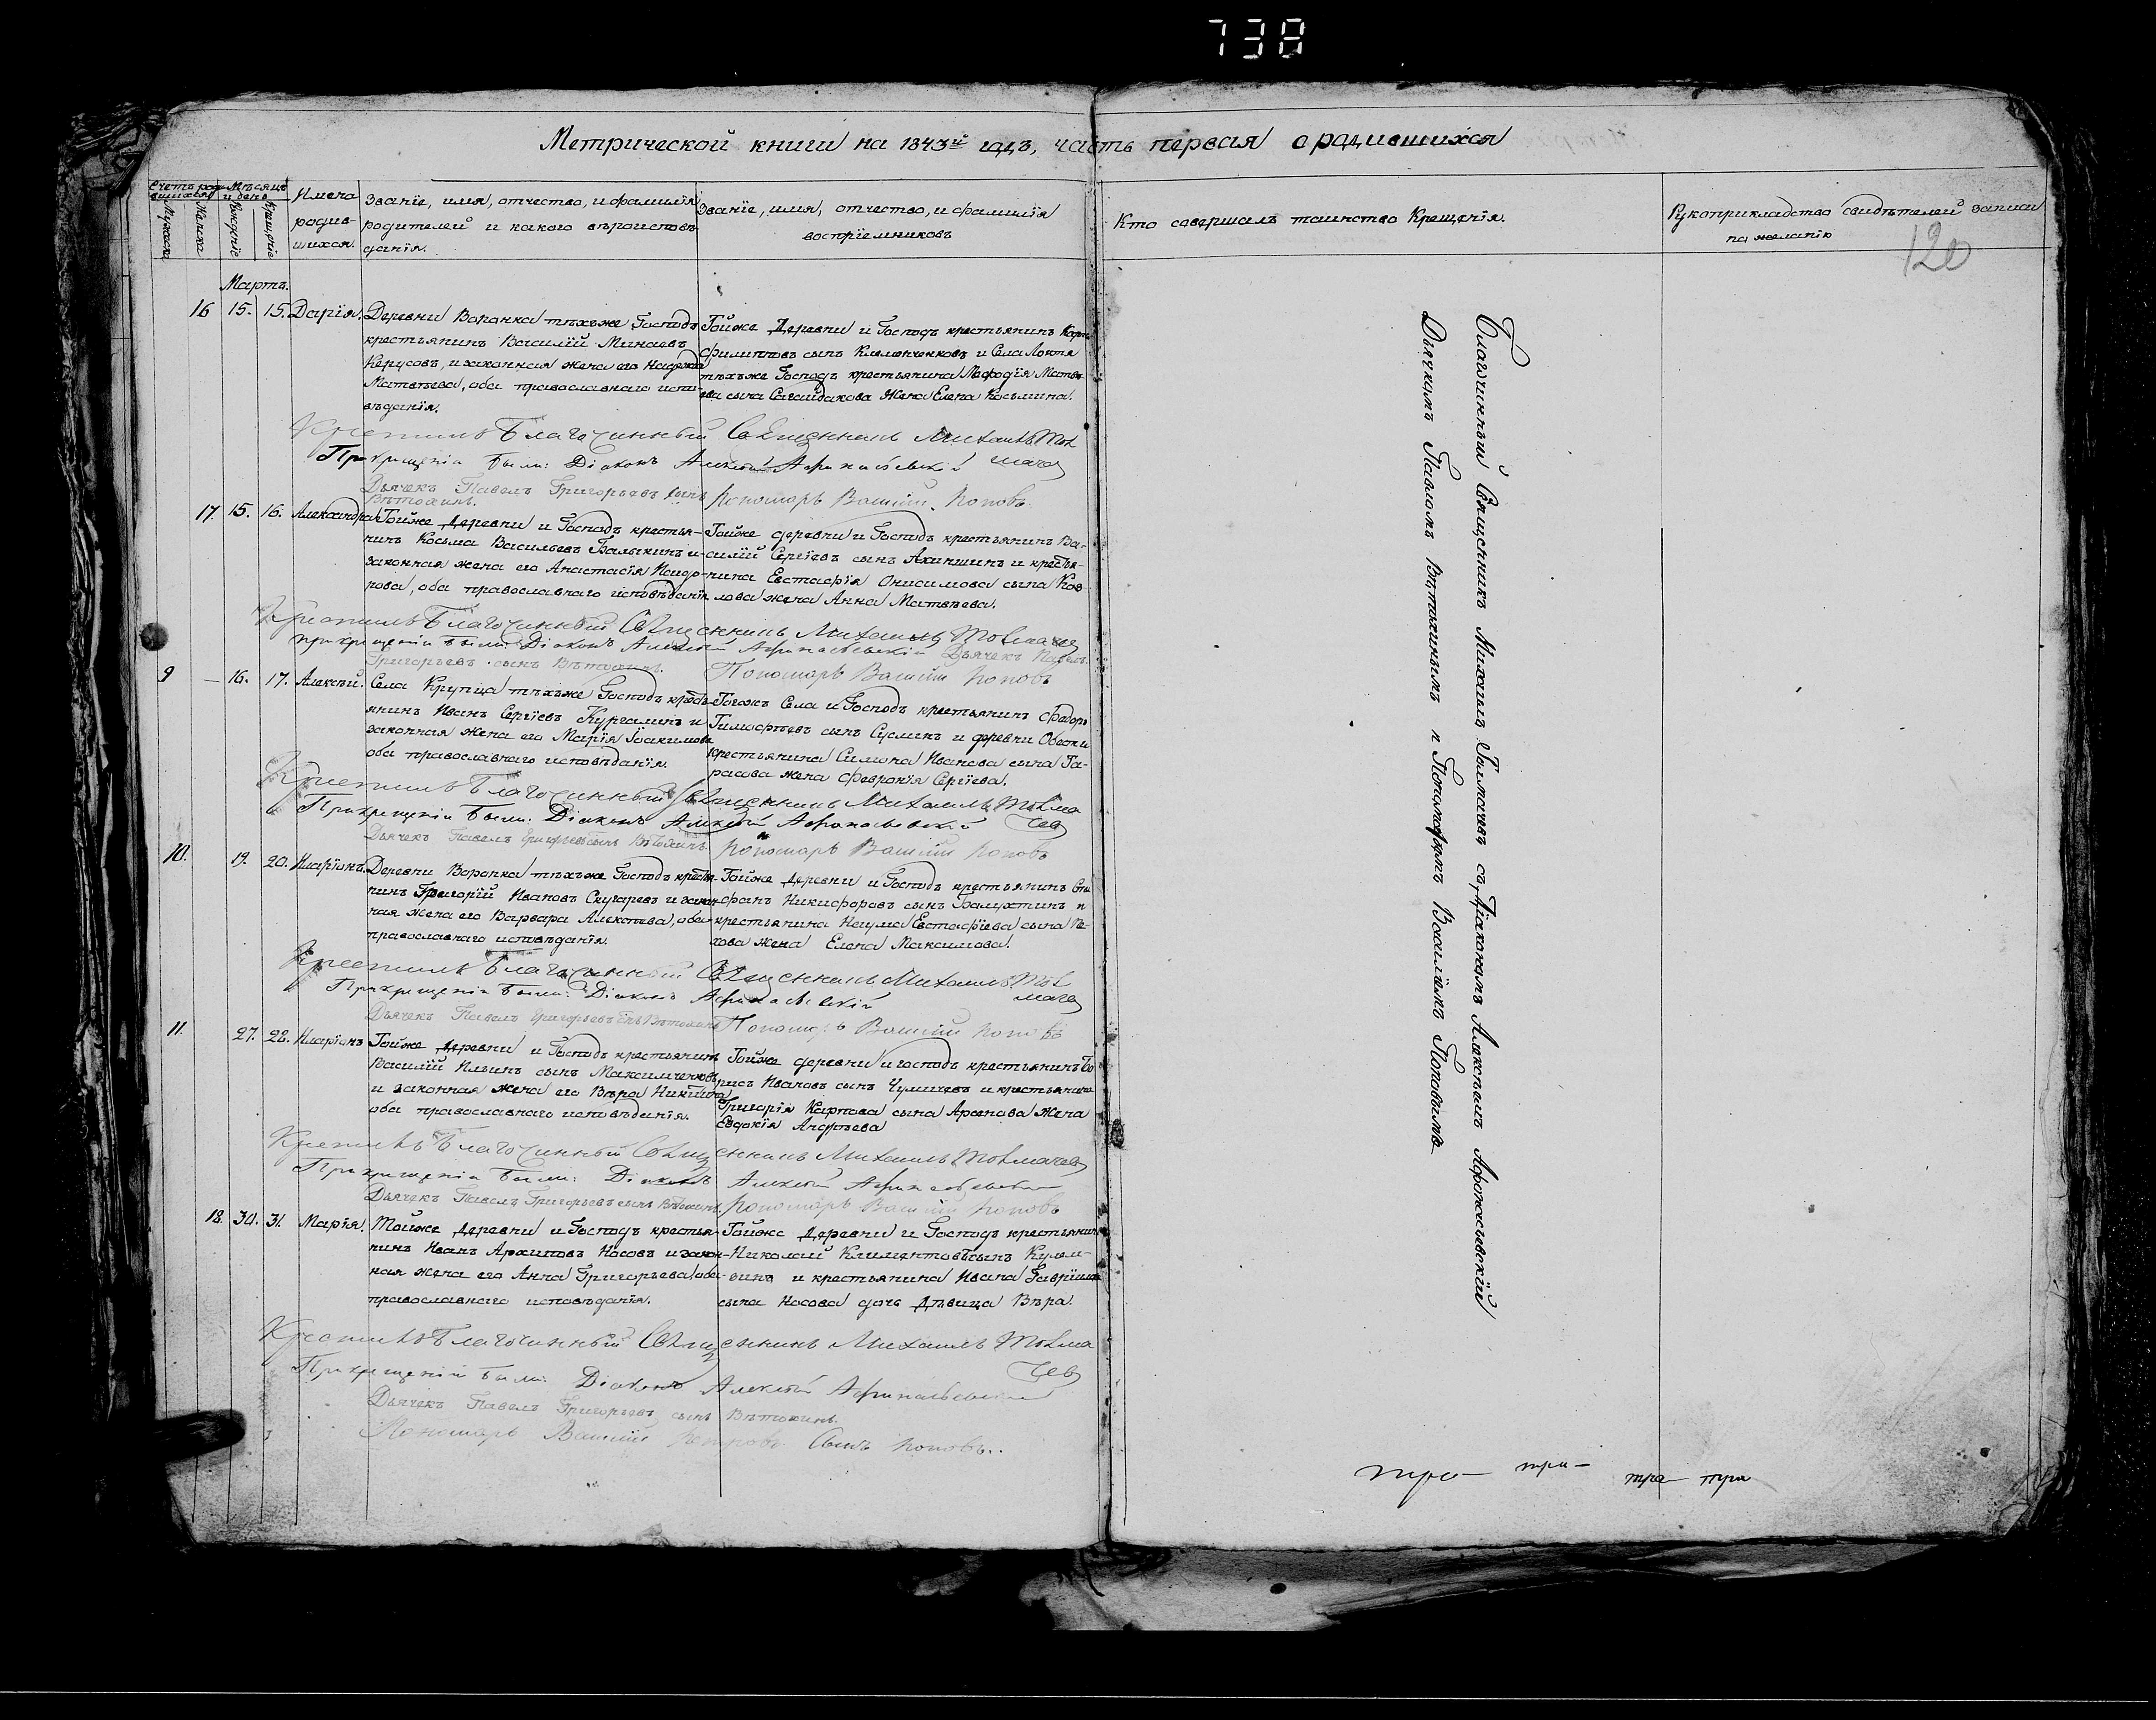 738
Метрической книги на 1843й годъ, часть первая о родившихся
Счетъ родившихся
Мѣсяцъ и день
Мужска
Женска
Рожденіе
Крещеніе
Имена родившихся.
Званіе, имя, отчество, и фамилія
родителей и какого вѣроисповѣ-
данія.
Званіе, имя, отчество, и фамилія
воспріемниковъ
Кто совершалъ таинство Крещенія.
Рукоприкладство свидѣтелей записи
по желанію
120
Мартъ.
16 15. 15. Дарія.
Деревни Воронка тѣхъже Господъ
крестьянинъ Василій Минаевъ
законная жена его
Матвѣева, оба православнаго испо-
вѣданія.
Тойже Деревни и Господъ крестьянинъ
Филипповъ сынъ и Села Локтя
тѣхъже Господъ крестьянина Мефодія
сына жена Елена Косьмина.
Крестилъ Благочинный Священникъ Михаилъ Тол
мачев
При крещеніи были: Діаконъ Алексѣй Афонасьевскій
Дьячекъ Павелъ Григорьевъ сынъ
Вѣтохинъ.
Пономарь Василій Поповъ
17. 15. 16. Александра
Тойже Деревни и Господъ крестья-
нинъ Косьма Васильевъ Балыкинъ и
законная жена его Анастасія Исидо-
рова, оба православнаго исповѣданія
Тойже деревни и Господъ крестьянинъ Ва-
силій Сергѣевъ сынъ Акиншинъ и крестья-
нина Евстафія Онисимова сына Коз
лова жена Анна Матвѣева.
Крестилъ Благочинный Священникъ Михаилъ Толмачев
При крещеніи были: Діаконъ Алексѣй Афонасьевскій Дьячекъ Павелъ
Григорьевъ сынъ Вѣтохинъ.
Пономарь Василій Поповъ
9 — 16. 17. Алексѣй.
Села Крупца тѣхъже Господъ кресть-
янинъ Иванъ Сергѣевъ и
законная жена его Марія Іоакимова
оба православнаго исповѣданія.
Тогожъ Села и Господъ крестьянинъ Федоръ
Тимофѣевъ сынъ Суслинъ и деревни
крестьянина Симона Иванова сына Та-
расова жена Февронія Сергѣева.
Крестилъ Благочинный Священникъ Михаилъ Толма
чев
При крещеніи были: Діаконъ Алексѣй Афонасьевскій
Дьячекъ Павелъ Григорьевъ сынъ Вѣтохинъ.
Пономарь Василій Поповъ
10. 19. 20. Иларіонъ.
Деревни Воронка тѣхъже Господъ крестья-
нинъ Григорій Ивановъ и закон-
ная жена его Варвара Алексѣева, оба
православнаго исповѣданія.
Тойже Деревни и Господъ крестьянинъ Сте
фанъ Никифоровъ сынъ и
крестьянина Наума Евстафіева сына
хова жена Елена Максимова.
Крестилъ Благочинный Священникъ Михаилъ Тол
мачев
При крещеніи были: Діаконъ Афонасьевскій
Дьячекъ Павелъ Григорьевъ сынъ Вѣтохинъ
Пономарь Василій Поповъ
11. 27. 28. Иларіонъ
Тойже Деревни и Господъ крестьянинъ
Василій Ильинъ сынъ Максимченковъ
и законная жена его Вѣра Никитина
оба православнаго исповѣданія.
Тойже деревни и господъ крестьянинъ Бо
рисъ Ивановъ сынъ Чумичевъ и крестьянина
Григорія Карпова сына жена
Евдокія Андрѣева
Крестилъ Благочинный Священникъ Михаилъ Толмачев
При крещеніи были: Діаконъ Алексѣй Афонасьевскій
Дьячекъ Павелъ Григорьевъ сынъ Вѣтохинъ.
Пономарь Василій Поповъ
18. 30. 31. Марія.
Тойже Деревни и Господъ крестья-
нинъ Иванъ Архиповъ Носовъ и закон-
ная жена его Анна Григорьева оба
православнаго исповѣданія.
Тойже Деревни и Господъ крестьянинъ
Николай Климентовъ сынъ
и крестьянина Ивана Гаврилова
сына Носова дочь Дѣвица Вѣра.
Крестилъ Благочинный Священникъ Михаилъ Толма
чев
При крещеніи были: Діаконъ Алексѣй Афонасьевскій
Дьячекъ Павелъ Григорьевъ сынъ Вѣтохинъ.
Пономарь Василій Петровъ Сынъ Поповъ.
Благочинный Священникъ Михаилъ Толмачевъ съ Діакономъ Алексѣемъ Афонасьевскимъ
Дьячкомъ Павломъ Вѣтохинымъ и Пономаремъ Василіемъ Поповымъ
три— три— три— три